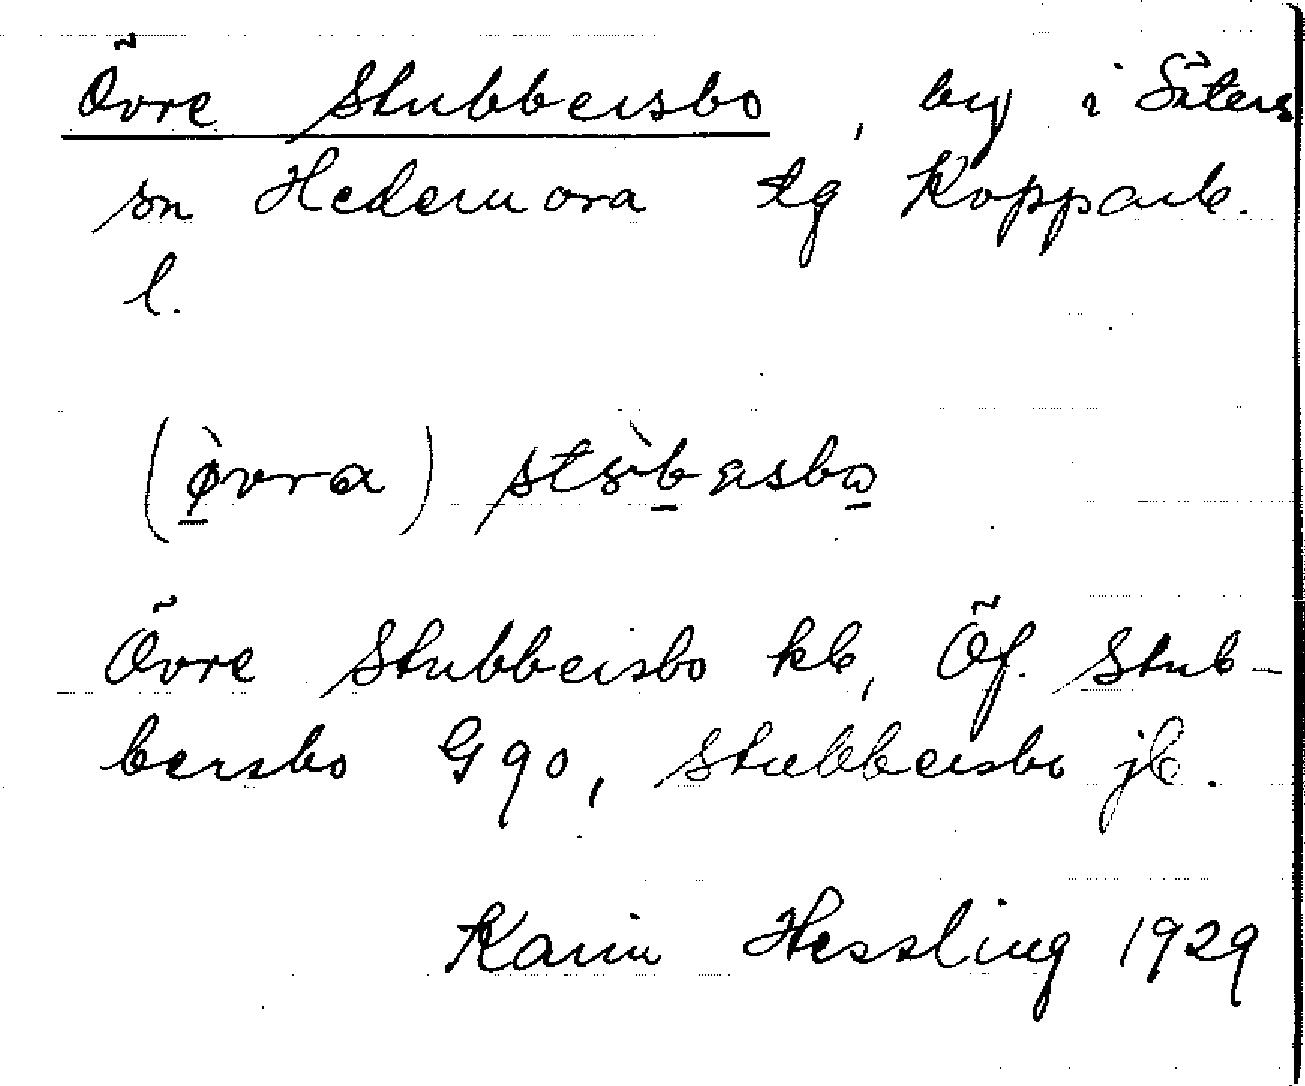 Övre Stubbersbo, by i Säters
sn Hedemora tg Kopparb.
l.
(ø̀vra)
Övre Stubbersbo kb, Öf. Stub-
bersbo G90, Stubbersbo jb.
Karin Hessling 1929